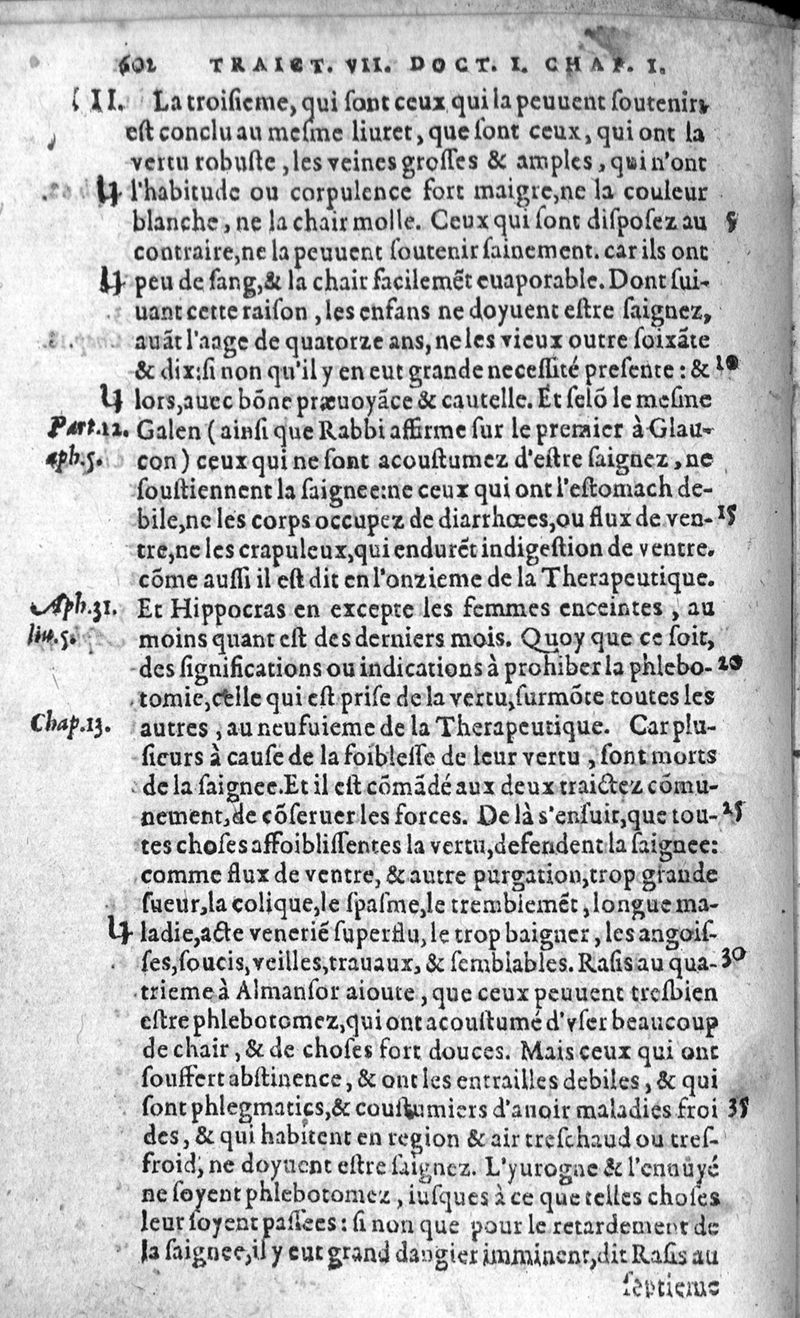 602 TRAICT. VII. DOCT. I. CHAP. I.
III. La troiſieme, qui ſont ceux qui la peuuent ſoutenir,
eſt conclu au meſme liuret, que ſont ceux, qui ont la
vertu robuſte, les veines groſſes & amples, qui n'ont
l'habitude ou corpulence fort maigre, ne la couleur
blanche, ne la chair molle. Ceux qui ſont diſpoſez au 5
contraire, ne la peuuent ſoutenir ſainement. car ils ont
peu de ſang, & la chair facilemēt euaporable. Dont ſui-
uant cette raiſon, les enfans ne doyuent eſtre ſaignez,
auāt l'aage de quatorze ans, ne les vieux outre ſoixāte
& dix: ſi non qu'il y en eut grande neceſſité preſente: & 10
lors, auec bōne præuoyāce & cautelle. Et ſelō le meſme
Part. 12. Galen (ainſi que Rabbi affirme ſur le premier à Glau-
aph. 5. con) ceux qui ne ſont acouſtumez d'eſtre ſaignez, ne
ſouſtiennent la ſaignee: ne ceux qui ont l'eſtomach de-
bile, ne les corps occupez de diarrhœes, ou flux de ven- 15
tre, ne les crapuleux, qui endurēt indigeſtion de ventre.
cōme auſſi il eſt dit en l'onzieme de la Therapeutique.
Aph. 31. Et Hippocras en excepte les femmes enceintes, au
liu. 5. moins quant eſt des derniers mois. Quoy que ce ſoit,
des ſignifications ou indications à prohiber la phlebo- 20
tomie, celle qui eſt priſe de la vertu, ſurmōte toutes les
Chap. 13. autres, au neufuieme de la Therapeutique. Car plu-
ſieurs à cauſe de la foibleſſe de leur vertu, ſont morts
de la ſaignee. Et il eſt cōmādé aux deux traictez cōmu-
nement, de cōſeruer les forces. De là s'enſuit, que tou- 25
tes choſes affoibliſſentes la vertu, defendent la ſaignee:
comme flux de ventre, & autre purgation, trop grande
ſueur, la colique, le ſpaſme, le tremblemēt, longue ma-
ladie, acte veneriē ſuperflu, le trop baigner, les angoiſ-
ſes, ſoucis, veilles, trauaux, & ſemblables. Raſis au qua- 30
trieme à Almanſor aioute, que ceux peuuent treſbien
eſtre phlebotomez, qui ont acouſtumé d'vſer beaucoup
de chair, & de choſes fort douces. Mais ceux qui ont
ſouffert abſtinence, & ont les entrailles debiles, & qui
ſont phlegmatics, & couſtumiers d'auoir maladies froi 35
des, & qui habitent en region & air treſchaud ou treſ-
froid, ne doyuent eſtre ſaignez. L'yurogne & l'ennuyé
ne ſoyent phlebotomez, iuſques à ce que telles choſes
leur ſoyent paſſees: ſi non que pour le retardement de
la ſaignee, il y eut grand dangier imminent, dit Raſis au
ſeptieme